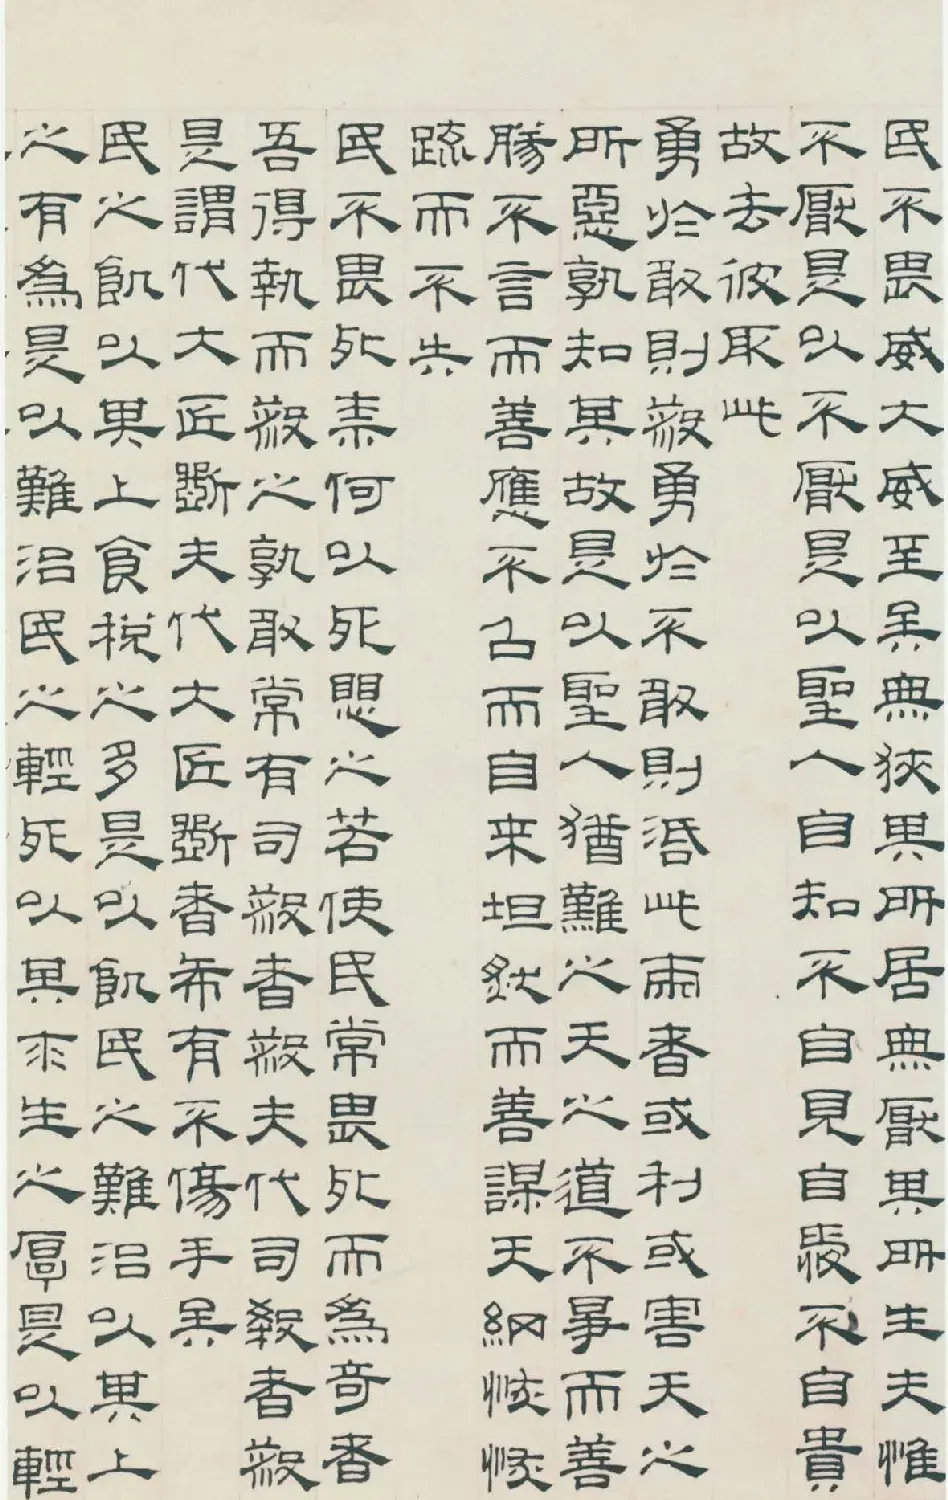 民不畏威大威至矣無狹其所居無厭其所生夫惟
不厭是以不厭是以聖人自知不自見自愛不自貴
故去彼取此
勇於敢則殺勇於不敢則活此兩者或利或害天之
所惡孰知其故是以聖人猶難之天之道不爭而善
勝不言而善應不召而自来坦然而善謀天網恢恢
疏而不失
民不畏死柰何以死愳之若使民常畏死而為奇者
吾得執而殺之孰敢常有司殺者殺夫代司殺者殺
是謂代大匠斲夫代大匠斲者希有不傷手矣
民之飢以其上食稅之多是以飢民之難治以其上
之有為是以難治民之輕死以其求生之厚是以輕